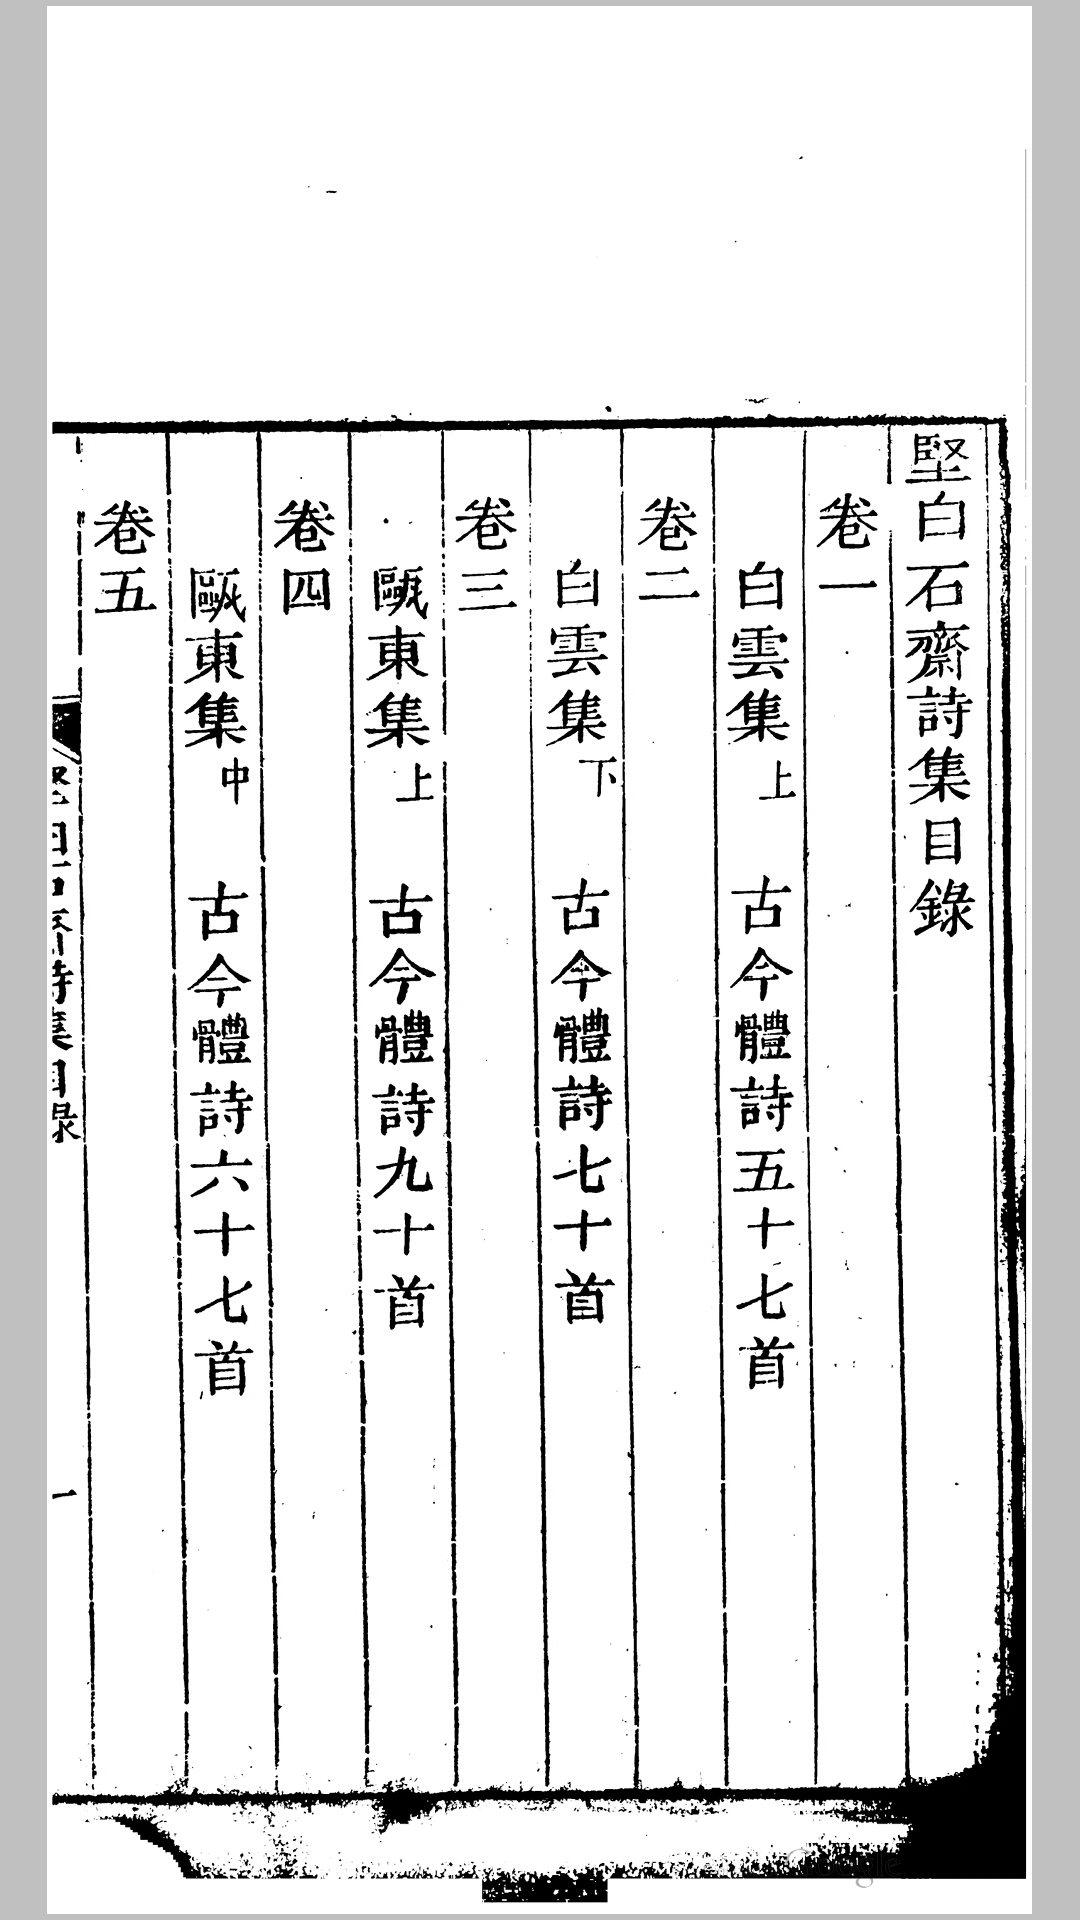 堅白石齋詩集目錄
卷一
白雲集上 古今體詩五十七首
卷二
白雲集下 古今體詩七十首
卷三
甌東集上 古今體詩九十首
卷四
甌東集中 古今體詩六十七首
卷五
堅白石齋詩集目錄 一
Google